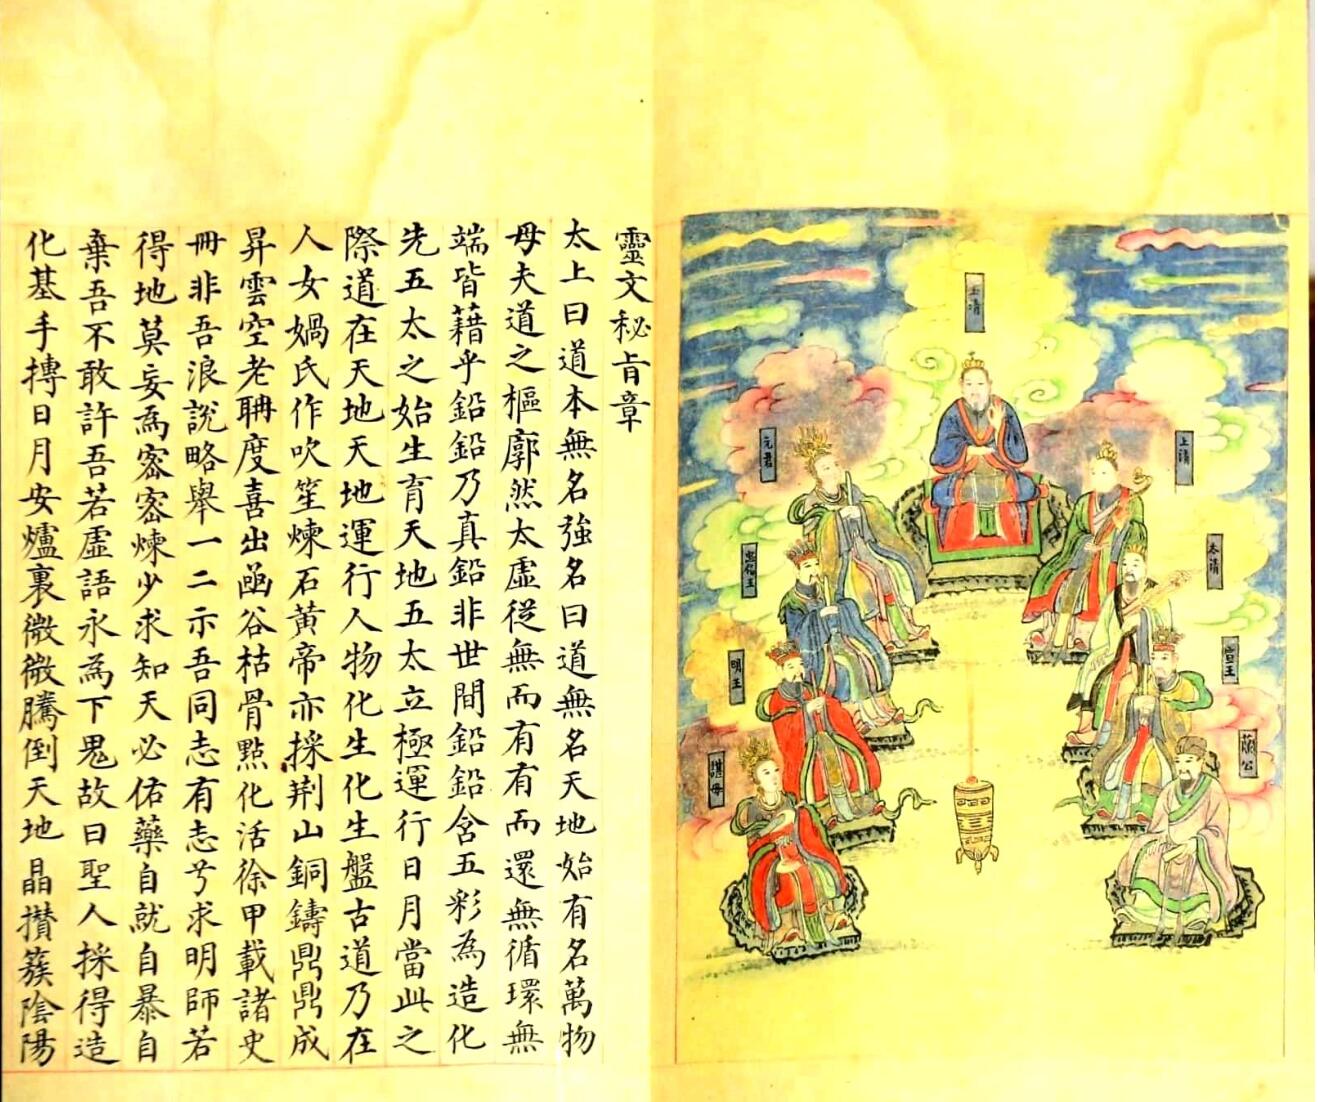 玉清
元君
上清
太清
明王
諶母
蘭公
靈文秘旨章
太上曰道本無名強名曰道無名天地始有名萬物
母夫道之樞廓然太虛從無而有有而還無循環無
端皆藉乎鉛鉛乃真鉛非世間鉛鉛含五彩為造化
先五太之始生育天地五太立極運行日月當此之
際道在天地天地運行人物化生化生盤古道乃在
人女媧氏作吹笙煉石黃帝亦採荆山銅鑄鼎鼎成
昇雲空老聃度喜出凾谷枯骨點化活徐甲載諸史
冊非吾浪說略舉一二示吾同志有志兮求明師若
得地莫妄爲密密煉少求知天必佑藥自就自暴自
棄吾不敢許吾若虛語永為下鬼故曰聖人採得造
化基手摶日月安爐裏微微騰倒天地晶攢簇陰陽